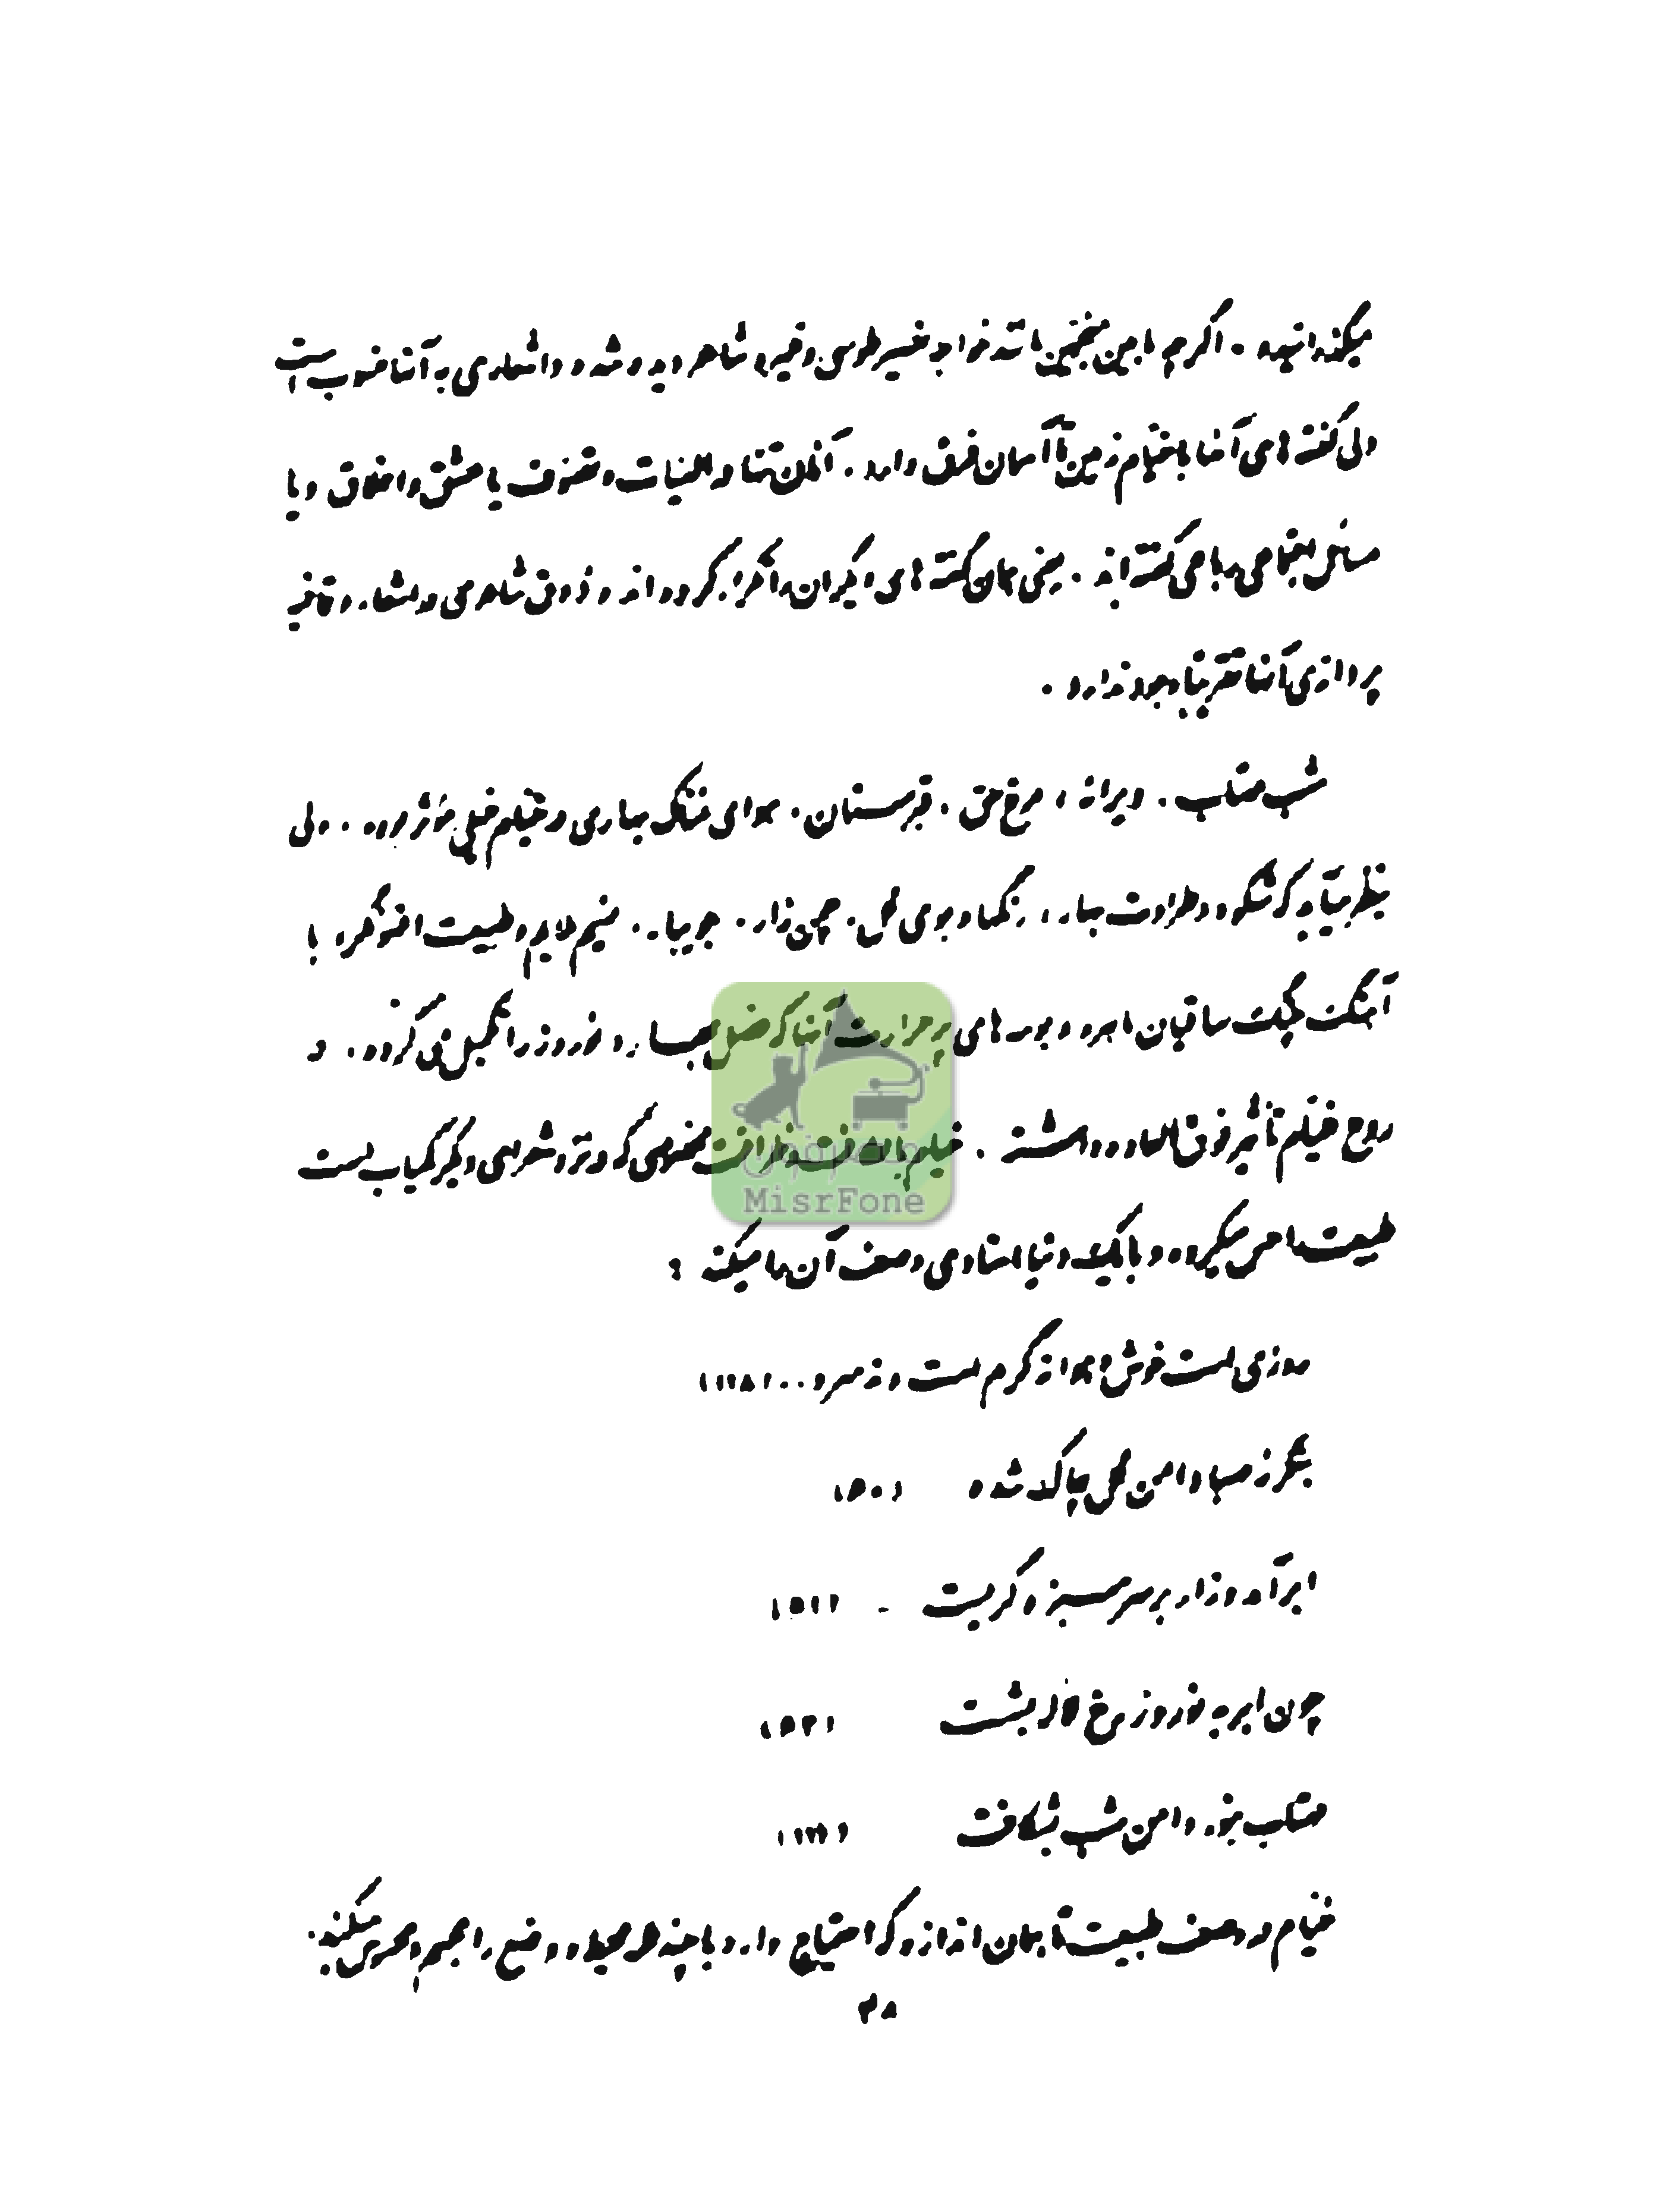 میکند دانسته. اگرچه بین منجمین مانند خواجه نصیر طوسی و غیره شاعر دیده شده و اشعاری به آنها منسوب است
ولی گفته‌های آنها با خیام زمین تا آسمان فرق دارد. آنان تنها در الهیات و تصوف یا عشق و اخلاق و یا
مسائل اجتماعی رباعی گفته‌اند. یعنی همان گفته‌های دیگران را تکرار کرده‌اند و ذوق شاعری در اشعار و قافیه
پردازی آنها تقریباً وجود ندارد.
شب مهتاب، ویرانه، مرغ حق، قبرستان، هوای نمناک بهاری در خیام خیلی مؤثر بوده. ولی
بنظر میآید که شکوه و طراوت بهار، رنگها و بوی گل، چمن زار، جویبار، نسیم ملایم و طبیعت افسونگر، با
آهنگ چنگ ساقیان ماهرو و بوسه‌های پر حرارت آنها که فصل بهار و نوروز را تکمیل می‌کرده، در
روح خیام تأثیر فوق‌العاده داشته. خیام با لطافت و ظرافت مخصوصی که در نزد شعرای دیگر کمیاب است
طبیعت را حس میکرده و با یک دنیا استادی وصف آن را میکند:
روزی است خوش و هوا نه گرم است و نه سرد.. (۱۱۸)
بنگر ز صبا دامن گل چاک شده (۵۰)
ابر آمد و زار بر سر سبزه گریست - (۵۱)
چون ابر به نوروز رخ لاله بشست (۵۲)
مهتاب بنور دامن شب بشکافت
خیام در وصف طبیعت تا همان اندازه که احتیاج دارد با چند کلمه محیط و وضع را مجسم و محسوس میکند.
۳۸
مصرفون
MisrFone